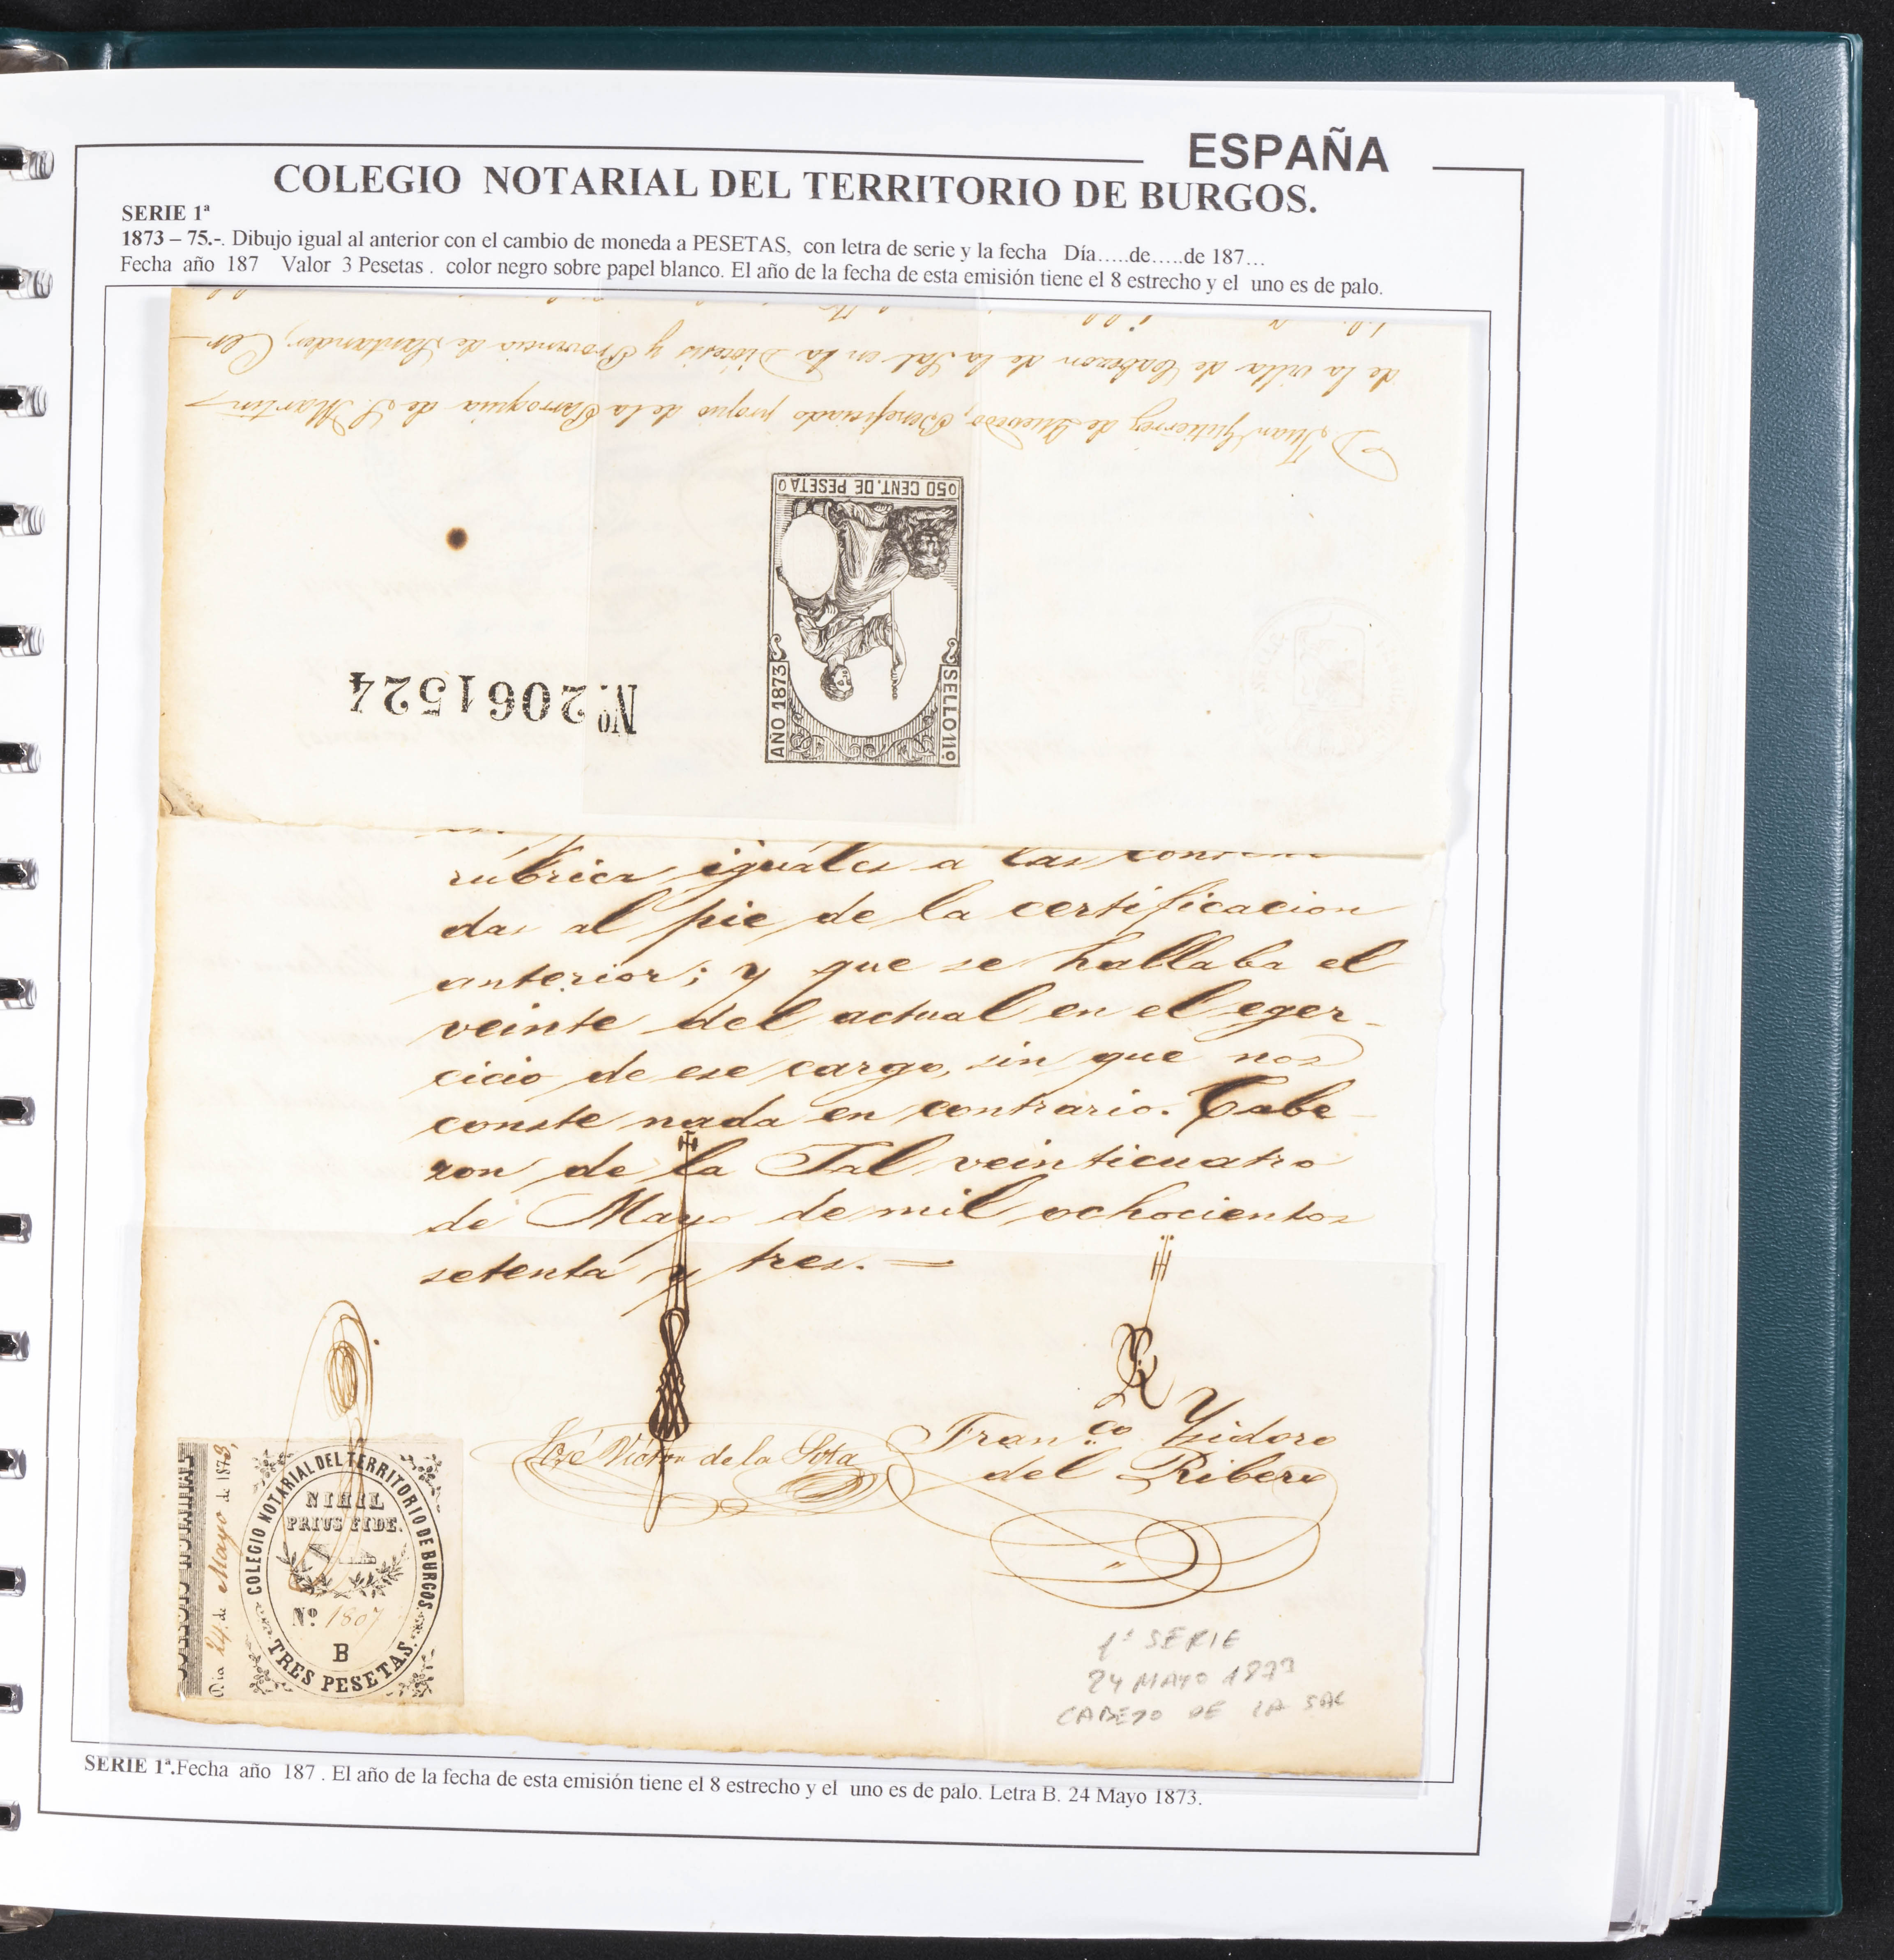 ESPAÑA
COLEGIO NOTARIAL DEL TERRITORIO DE BURGOS.
SERIE 1ª
1873 – 75.-. Dibujo igual al anterior con el cambio de moneda a PESETAS, con letra de serie y la fecha Día.....de.....de 187...
Fecha año 187 Valor 3 Pesetas . color negro sobre papel blanco. El año de la fecha de esta emisión tiene el 8 estrecho y el uno es de palo.
D. Juan Gutierrez de Quevedo, Beneficiado propio de la Parroquia de S. Martin
de la villa de Cabezon de la Sal en la Diócesis y Provincia de Santander, Cer-
050 CENT. DE PESETA0
AÑO 1873
SELLO 11º
Nº 2061524
rubrica iguales a las
das al pie de la certificacion
anterior; y que se hallaba el
veinte del actual en el eger-
cicio de ese cargo, sin que nos
conste nada en contrario. Cabe-
zon de la Sal veinticuatro
de Mayo de mil ochocientos
setenta y tres. =
José Victor de la Sota
Fran.co Ysidoro
del Ribero
Dia 24 de Mayo de 1873,
COLEGIO NOTARIAL DEL TERRITORIO DE BURGOS.
NIHIL
PRIUS FIDE.
Nº 1807
B
TRES PESETAS.
1ª SERIE
24 MAYO 1873
CABEZO DE LA SAL
SERIE 1ª.Fecha año 187 . El año de la fecha de esta emisión tiene el 8 estrecho y el uno es de palo. Letra B. 24 Mayo 1873.